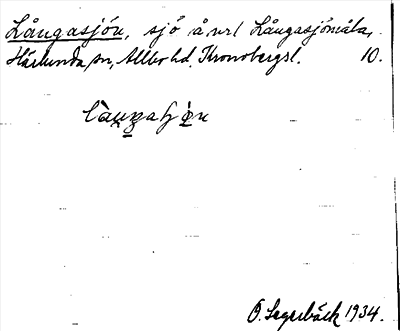 Långasjön, sjö å url Långasjömåla,
Härlunda sn, Allbo hd, Kronobergsl. 10.
O. Segerbäck 1934.